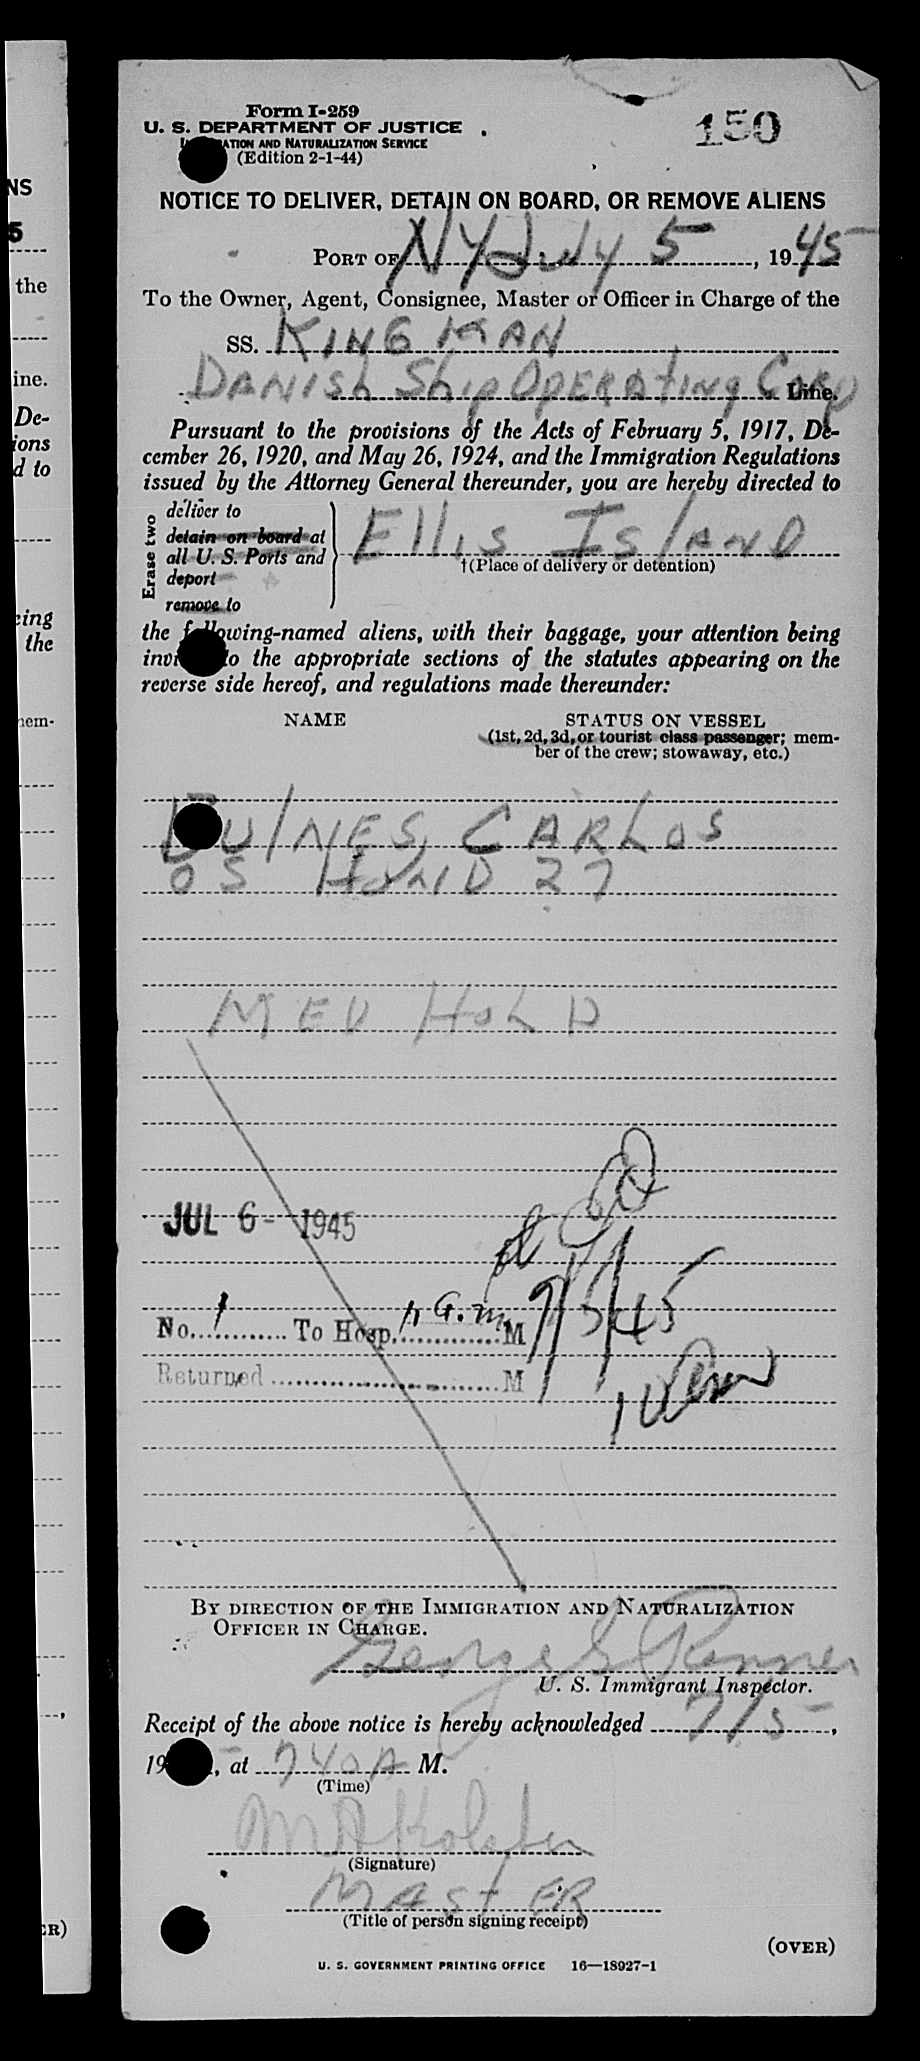 NS
5
the
ine.
De-
ions
d to
cing
the
nem-
ER)
Form I-259
150
U. S. DEPARTMENT OF JUSTICE
AND NATURALIZATION SERVICE
(Edition 2-1-44)
NOTICE TO DELIVER, DETAIN ON BOARD, OR REMOVE ALIENS
PORT OF NY July 5, 1945
To the Owner, Agent, Consignee, Master or Officer in Charge of the
SS. KING KAN
DANISh Ship OPERAting CORP Line.
Pursuant to the provisions of the Acts of February 5, 1917, De-
cember 26, 1920, and May 26, 1924, and the Immigration Regulations
issued by the Attorney General thereunder, you are hereby directed to
Erase two
deliver to
detain on board at
all U. S. Ports and
deport
remove to
Ellis IslAND
†(Place of delivery or detention)
the following-named aliens, with their baggage, your attention being
invited to the appropriate sections of the statutes appearing on the
reverse side hereof, and regulations made thereunder:
NAME
STATUS ON VESSEL
(1st, 2d, 3d, or tourist class passenger; mem-
ber of the crew; stowaway, etc.)
BULNES, CARLOS
OS HOND 27
MED HOLD
JUL 6 - 1945
No. 1 To Hosp. 11 a.m. M
7/5/45
Returned M
BY DIRECTION OF THE IMMIGRATION AND NATURALIZATION
OFFICER IN CHARGE.
George S Renner
U. S. Immigrant Inspector.
Receipt of the above notice is hereby acknowledged 7/5,
19, at 740 A M.
(Time)
(Signature)
MASTER
(Title of person signing receipt)
(OVER)
U. S. GOVERNMENT PRINTING OFFICE 16—18927-1